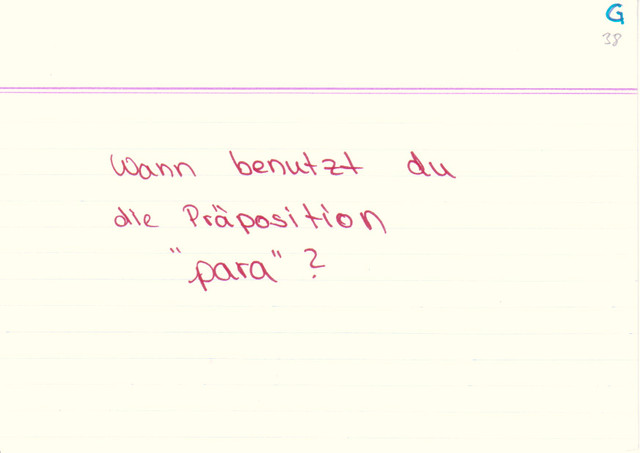 G
38
Wann benutzt du
die Präposition
"para"?